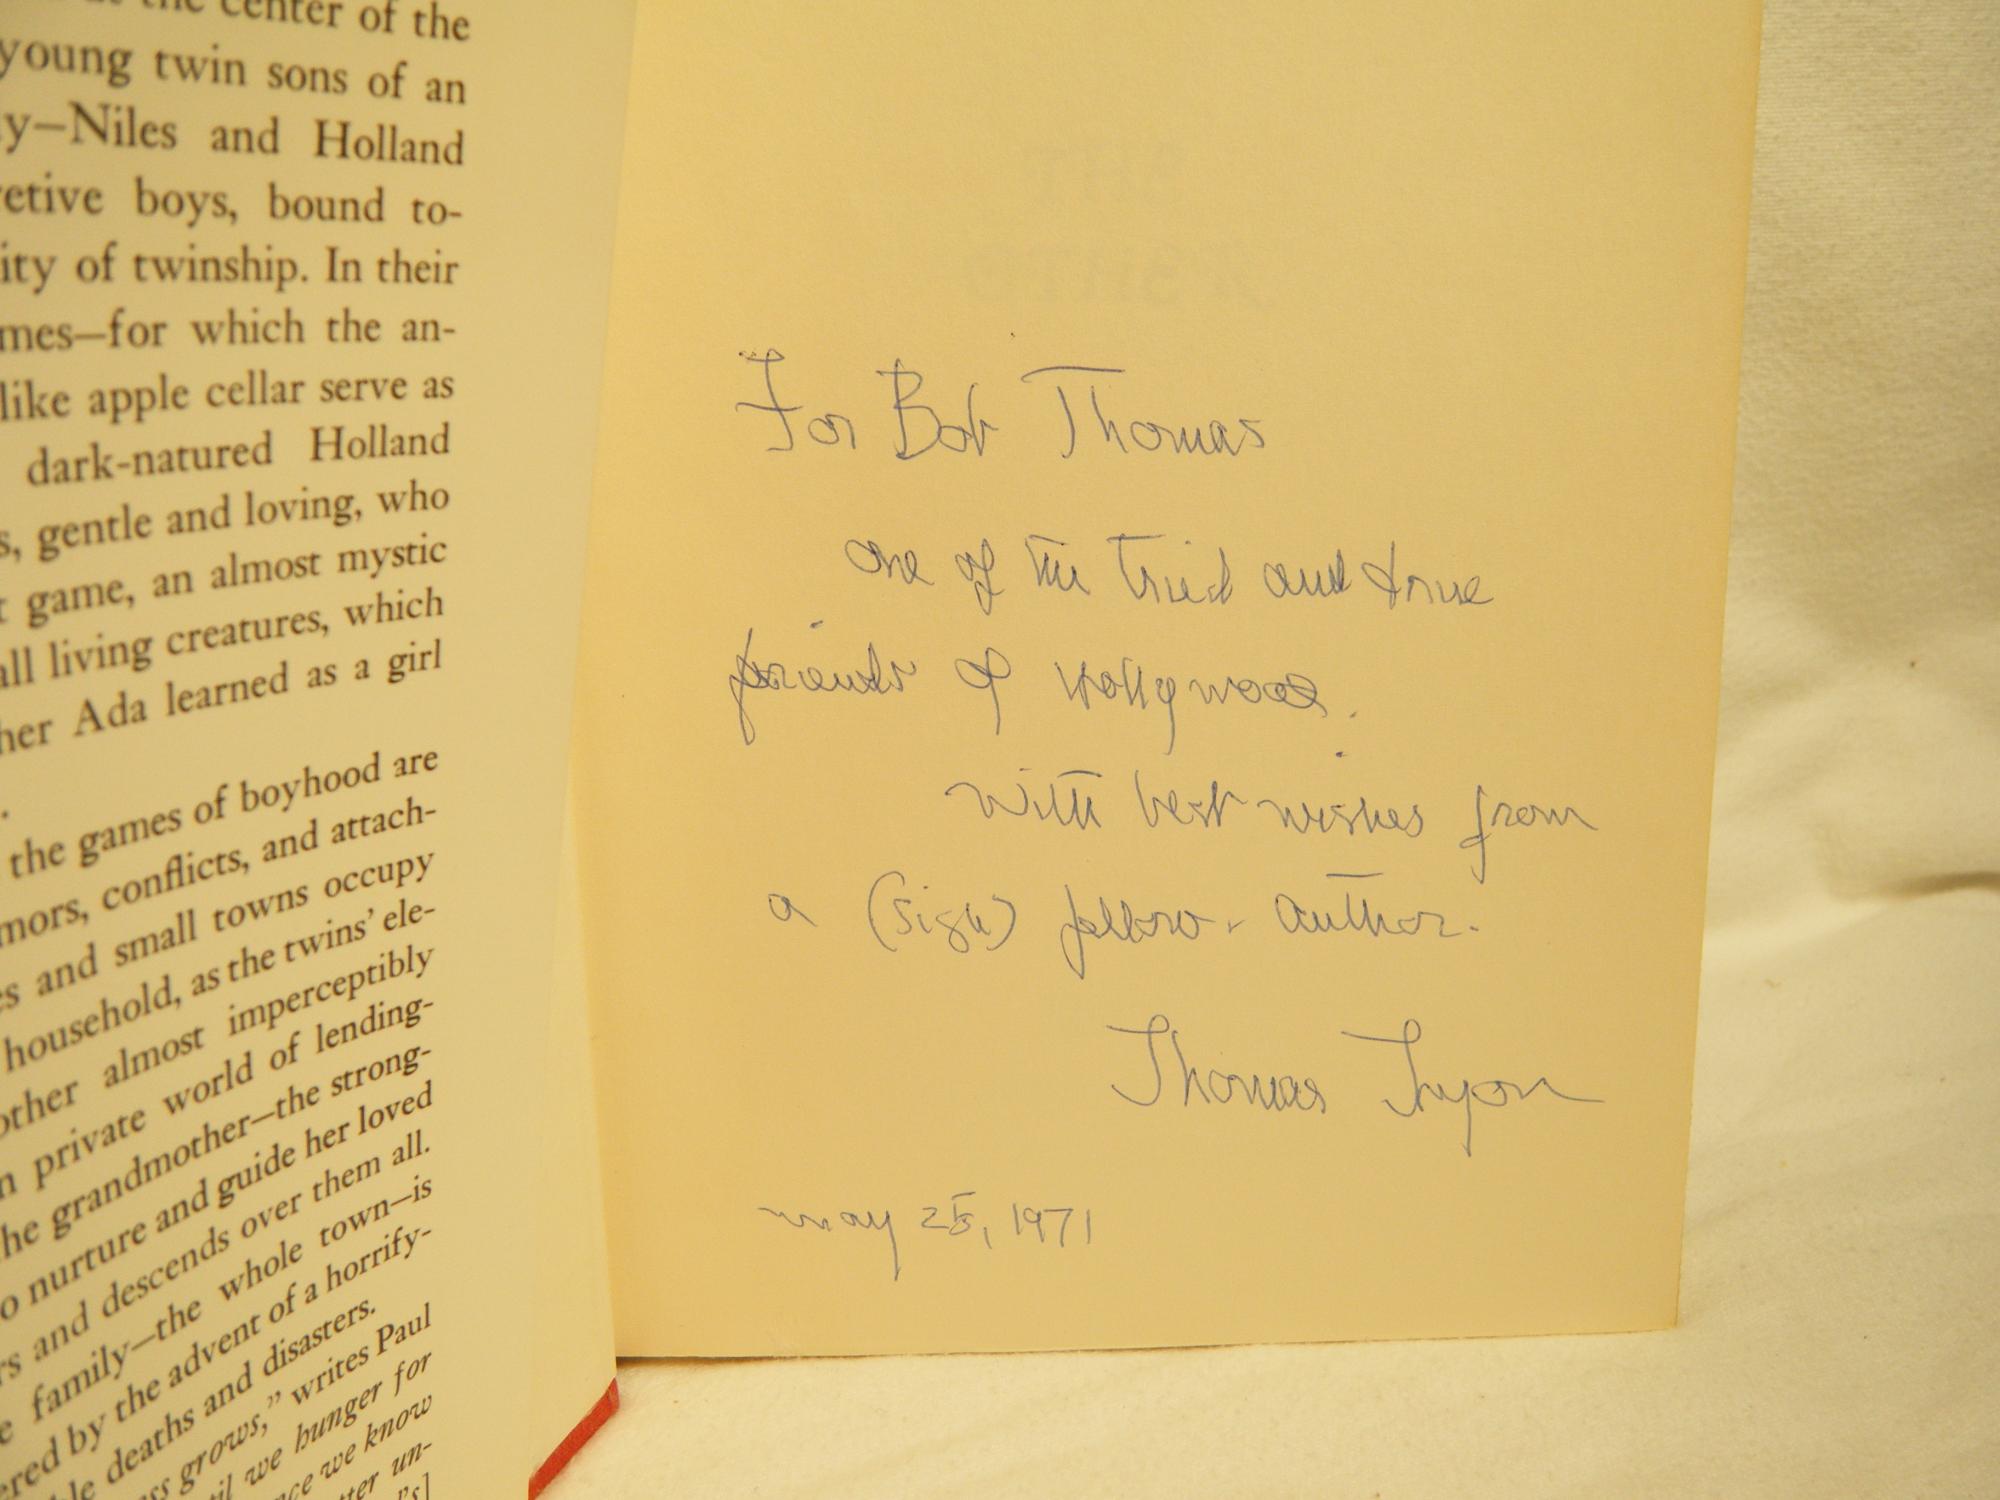 the center of the
young twin sons of an
y—Niles and Holland
etive boys, bound to-
ity of twinship. In their
mes—for which the an-
like apple cellar serve as
dark-natured Holland
s, gentle and loving, who
game, an almost mystic
all living creatures, which
her Ada learned as a girl
.
the games of boyhood are
mors, conflicts, and attach-
es and small towns occupy
household, as the twins' ele-
other almost imperceptibly
n private world of lending-
he grandmother—the strong-
o nurture and guide her loved
rs and descends over them all.
e family—the whole town—is
ered by the advent of a horrify-
le deaths and disasters.
ss grows," writes Paul
il we hunger for
nce we know
tter un-
's]
For Bob Thomas
one of the tried and true
friends of Hollywood.
with best wishes from
a (sigh) fellow-author.
Thomas Tryon
May 25, 1971